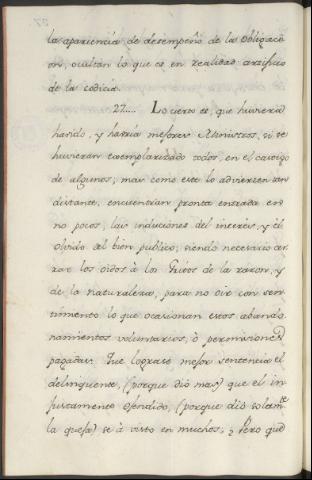 la apariencia de desempeño de la obligaci
on, ocultan lo que es en realidad artificio
de la codicia.
22.... Lo cierto es, que huviera
havido, y havria mejores Ministros, si se
huvieran exemplarizado todos, en el castigo
de algunos; mas como este lo advierten tan
distante, encuentran pronta entrada en
no pocos, las induciones del interès, y èl
olvido al bien publico; siendo necesario cer
rar los oidos à los Gritos de la razon, y
de la naturaleza, para no oir con sen
timiento lo que ocasionan estos abando
namientos voluntarios, ò permisiones
pagadas. Que lograse mejor sentencia el
delinquente, (porque diò mas) que el in
justamente ofendido, (porque diò solamte
la quexa) se à visto en muchos; ¿Pero què